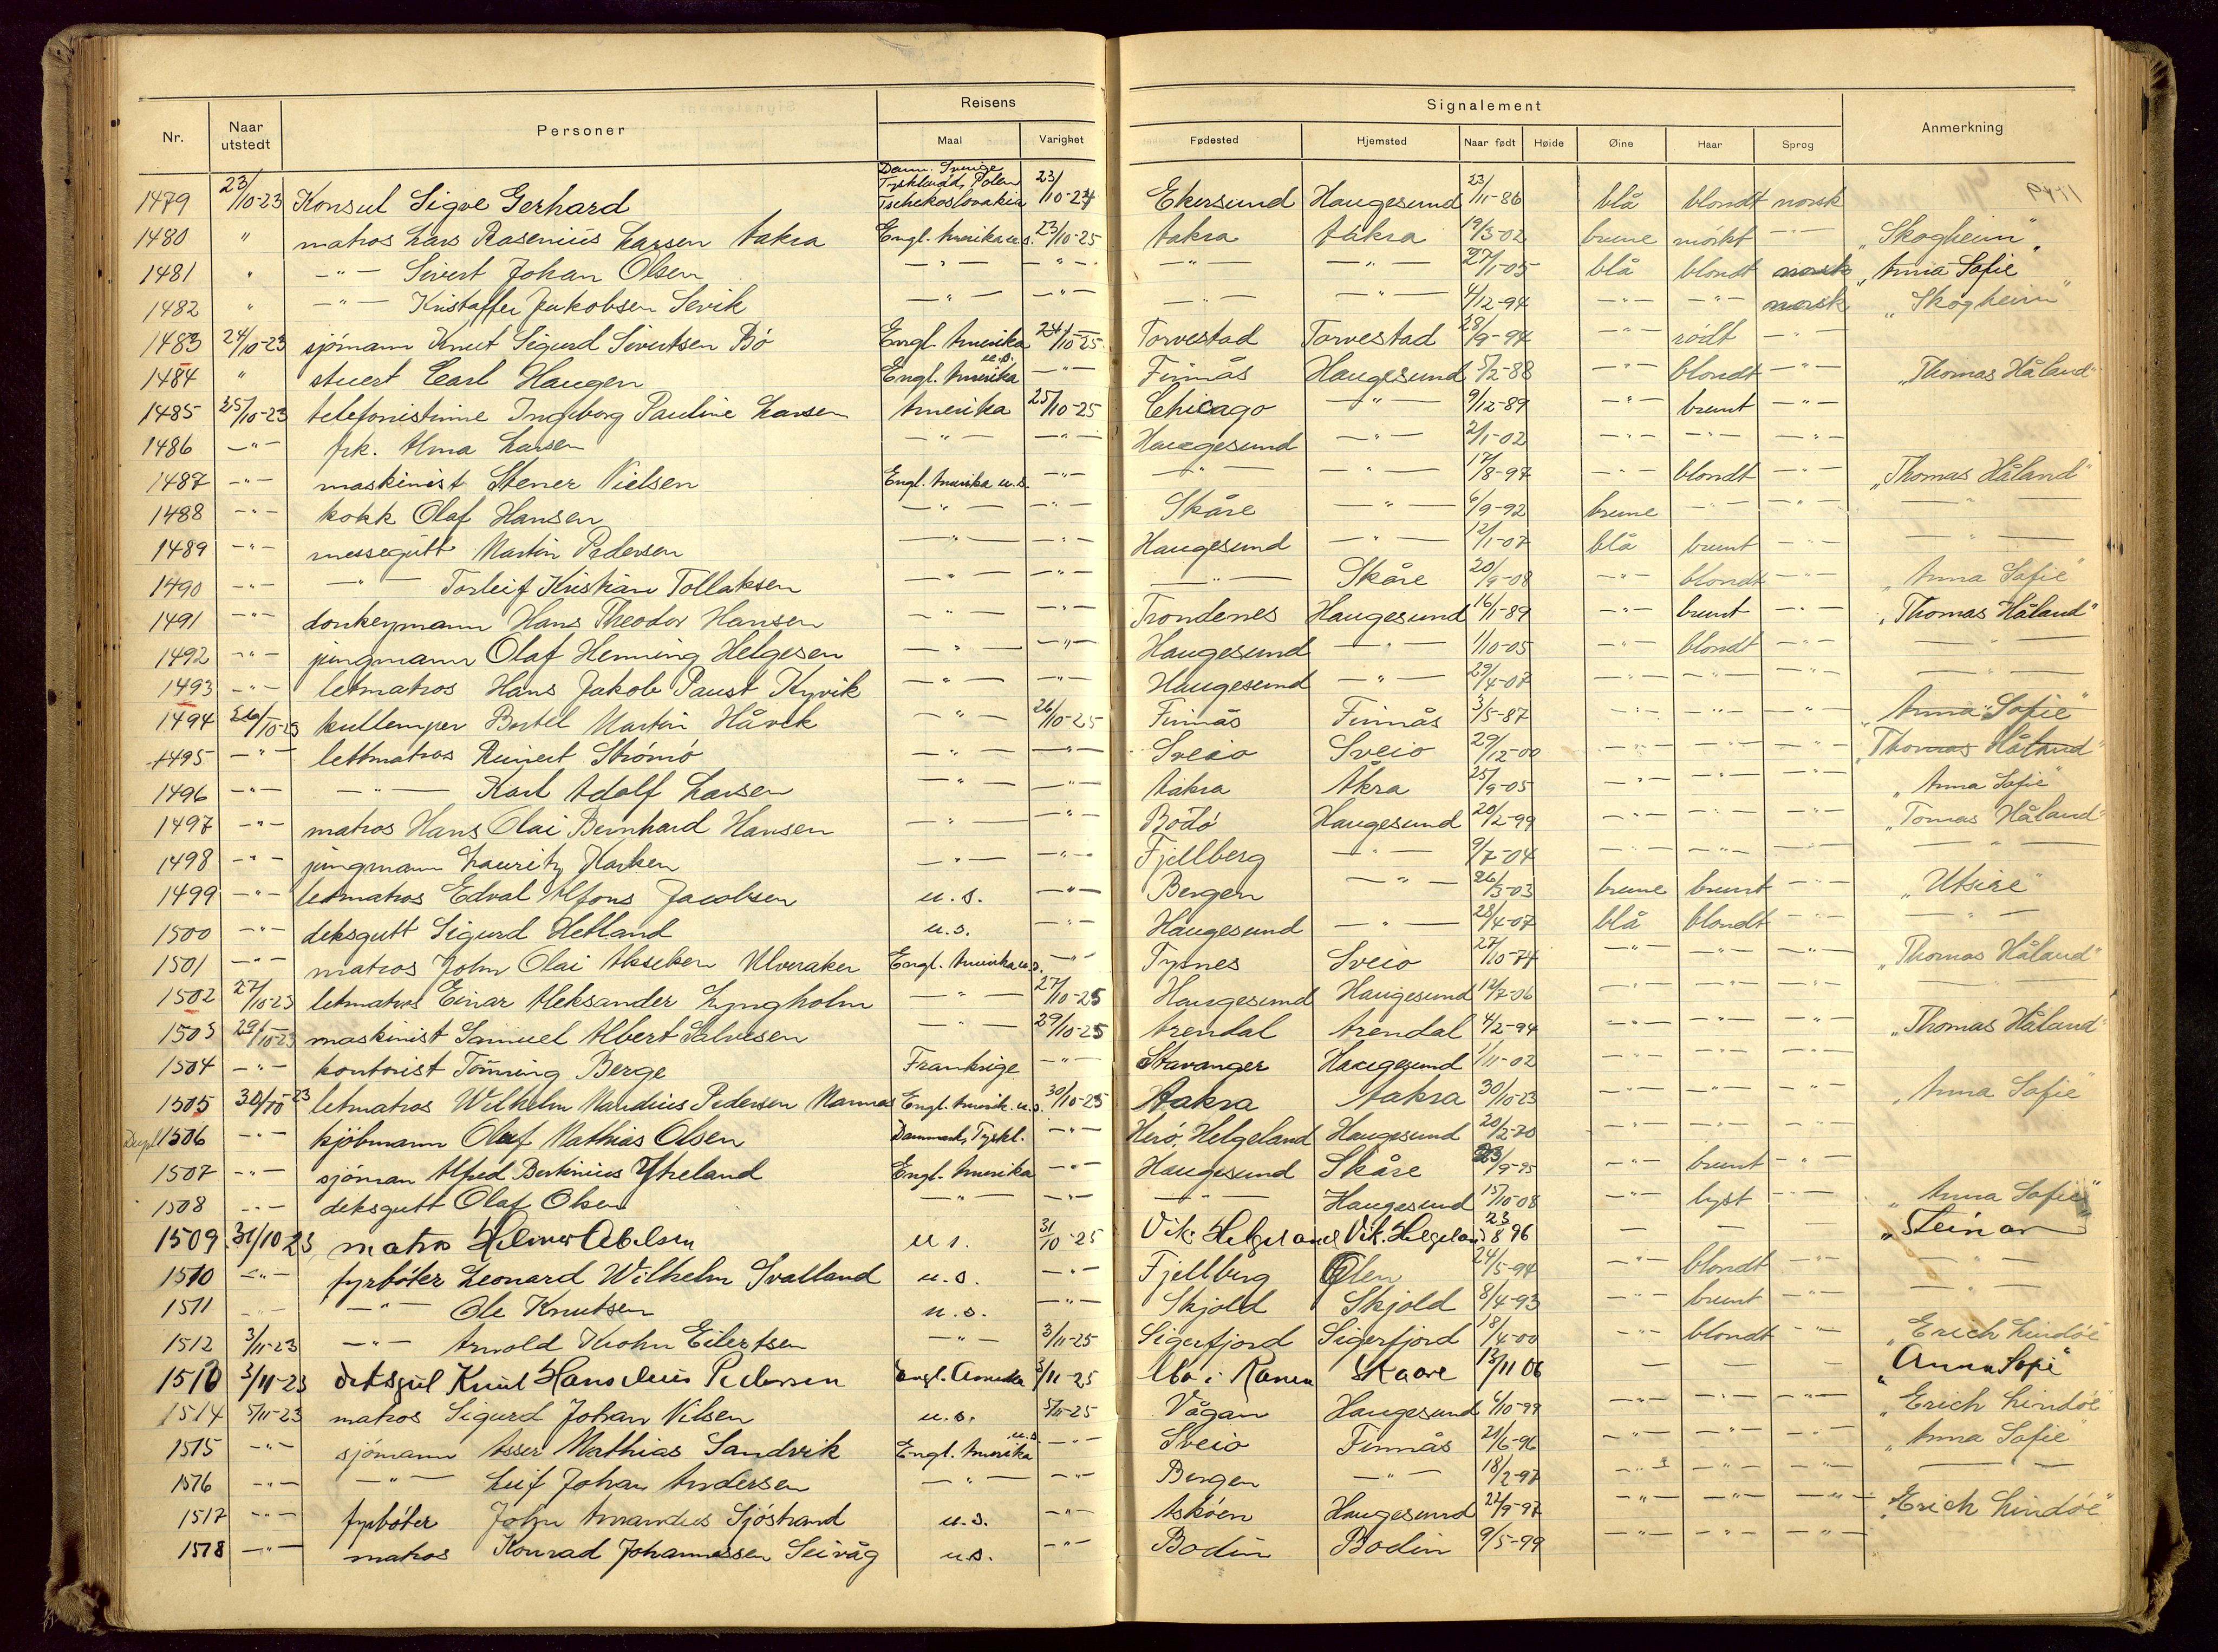 Nr. Naar utstedt Personer Reisens Maal Varighet Signalement Fødested Hjemsted Naar født Høide Øine Haar Sprog Anmerkning
1479 23/10-23 Konsul Sigve Gerhard Danm. Sverige Tyskland, Polen Tschekoslovakia 23/10-24 Ekersund Haugesund 23/11-86 blå blondt norsk
1480 " matros Lars Rasenius Larsen Aakra Engl. Amerika u.s. 23/10-25 Aakra Aakra 19/3-02 brune mörkt -"- "Skogheim".
1481 " -"- Sivert Johan Olsen -"- -"- -"- -"- 27/1-05 blå blondt norsk "Anna Sofie"
1482 " -"- Kristoffer Jakobsen Sevik -"- -"- -"- -"- 4/12-94 -"- -"- norsk "Skogheim"
1483 24/10-23 sjömann Knut Sigurd Sivertsen Bö Engl. Amerika u.s. 24/10-25 Torvestad Torvestad 28/9-94 -"- rödt -
1484 " stuert Carl Haugen Engl. Amerika -"- Finnås Haugesund 5/2-88 -"- blondt -"- "Thomas Håland"
1485 25/10-23 telefonistinne Ingeborg Pauline Larsen Amerika 25/10-25 Chicago -"- 9/12-89 -"- brunt -"-
1486 -"- frk. Alma Larsen -"- -"- Haugesund -"- 2/1-02 -"- -"- -"-
1487 -"- maskinist Stener Nielsen Engl. Amerika u.s. -"- -"- -"- 17/8-97 -"- blondt -"- "Thomas Håland"
1488 -"- kokk Olaf Hansen -"- -"- Skåre -"- 6/9-92 brune -"- -"- -"-
1489 -"- messegutt Martin Pedersen -"- -"- Haugesund -"- 12/1-07 blå brunt -"- -"-
1490 -"- -"- Torleif Kristian Tollaksen -"- -"- -"- Skåre 20/9-08 -"- blondt -"- "Anna Sofie"
1491 -"- donkeymann Hans Theodor Hansen -"- -"- Trondenes Haugesund 16/1-89 -"- brunt -"- "Thomas Håland"
1492 -"- jungmann Olaf Henning Helgesen -"- -"- Haugesund -"- 1/10-05 -"- blondt -"- -"-
1493 -"- letmatros Hans Jakob Paust Kyvik -"- -"- Haugesund -"- 29/4-07 -"- -"- -"- -"-
1494 26/10-23 kullemper Bertel Martin Håvik -"- 26/10-25 Finnås Finnås 3/5-87 -"- -"- -"- "Anna Sofie"
1495 -"- lettmatros Reinert Strömö -"- -"- Sveio Sveio 29/12-00 -"- -"- -"- "Thomas Håland"
1496 -"- -"- Karl Adolf Larsen -"- -"- Aakra Åkra 25/9-05 -"- -"- -"- "Anna Sofie"
1497 -"- matros Hans Olai Bernhard Hansen -"- -"- Bodö Haugesund 20/2-99 -"- -"- -"- "Tomas Håland"
1498 -"- jungmann Lauritz -"- -"- Fjellberg -"- 9/7-04 -"- -"- -"- -"-
1499 -"- letmatros Edval Alfons Jacobsen u.s. -"- Bergen -"- 26/3-03 brune brunt -"- "Utsire"
1500 -"- deksgutt Sigurd Hetland u.s. -"- Haugesund -"- 28/4-07 blå blondt -"- -"-
1501 -"- matros John Olai Ulveraker Engl. Amerika u.s. -"- Tysnes Sveio 27/10-74 -"- -"- -"- "Thomas Håland"
1502 27/10-23 letmatros Einar Aleksander Lyngholm -"- 27/10-25 Haugesund Haugesund 12/7-06 -"- -"- -"- -"-
1503 29/10-23 maskinist Samuel Albert Salvesen -"- 29/10-25 Arendal Arendal 4/2-94 -"- -"- -"- "Thomas Håland"
1504 -"- kontorist Tönning Berge Frankrige -"- Stavanger Haugesund 1/11-02 -"- -"- -"-
1505 30/10 23 letmatros Wilhelm Nandius Pedersen Engl. Amerik. u.s. 30/10-25 Aakra Aakra 30/10-23 -"- -"- -"- "Anna Sofie"
Dupl 1506 -"- kjöbmann Olaf Mathias Olsen Danmark, Tyskl. -"- Herö, Helgeland Haugesund 20/2-70 -"- -"- -"-
1507 -"- sjöman Alfred Bertinius Ytreland Engl. Amerika -"- Haugesund Skåre 23/9-95 -"- brunt -"-
1508 -"- deksgutt Olaf Olsen -"- -"- -"- Haugesund 15/10-08 -"- lyst -"- "Anna Sofie"
1509 31/10 23 matros Helmer Abelsen u s. 31/10-25 Vik. Helgeland Vik. Helgeland 23/8 96 - - "Steinar
1510 -"- fyrböter Leonard Wilhelm Svalland u.s. -"- Fjellberg Ølen 24/5-94 -"- blondt -"- -"-
1511 -"- -"- Ole Knutsen u.s. -"- Skjold Skjold 8/4-93 -"- brunt -"- -"-
1512 3/11-23 -"- Arnold Krohn Eilertsen -"- 3/11-25 Sigerfjord Sigerfjord 18/4-00 -"- blondt -"- "Erich Lindöe"
1513 3/11-23 Knut Hanselius Pedersen Engl. Amerika 3/11-25 Mo i Ranen Skaare 13/11 06 - - - "Anna Sofie"
1514 5/11-23 matros Sigurd Johan Nilsen u.s. 5/11-25 Vågan Haugesund 6/10-99 -"- -"- -"- "Erich Lindöe"
1515 -"- sjömann Asser Mathias Sandvik Engl. Amerika u.s. -"- Sveio Finnås 21/6-96 -"- -"- -"- "Anna Sofie"
1516 -"- -"- Leif Johan Andersen -"- -"- Bergen -"- 18/2-97 -"- -"- -"- -"-
1517 -"- fyrböter John Amandus Sjöstrand u.s. -"- Asköen Haugesund 22/9-97 -"- -"- -"- "Erich Lindöe"
1518 -"- matros Konrad Johannessen Seivåg u.s. -"- Bodin Bodin 9/5-99 -"- -"- -"-